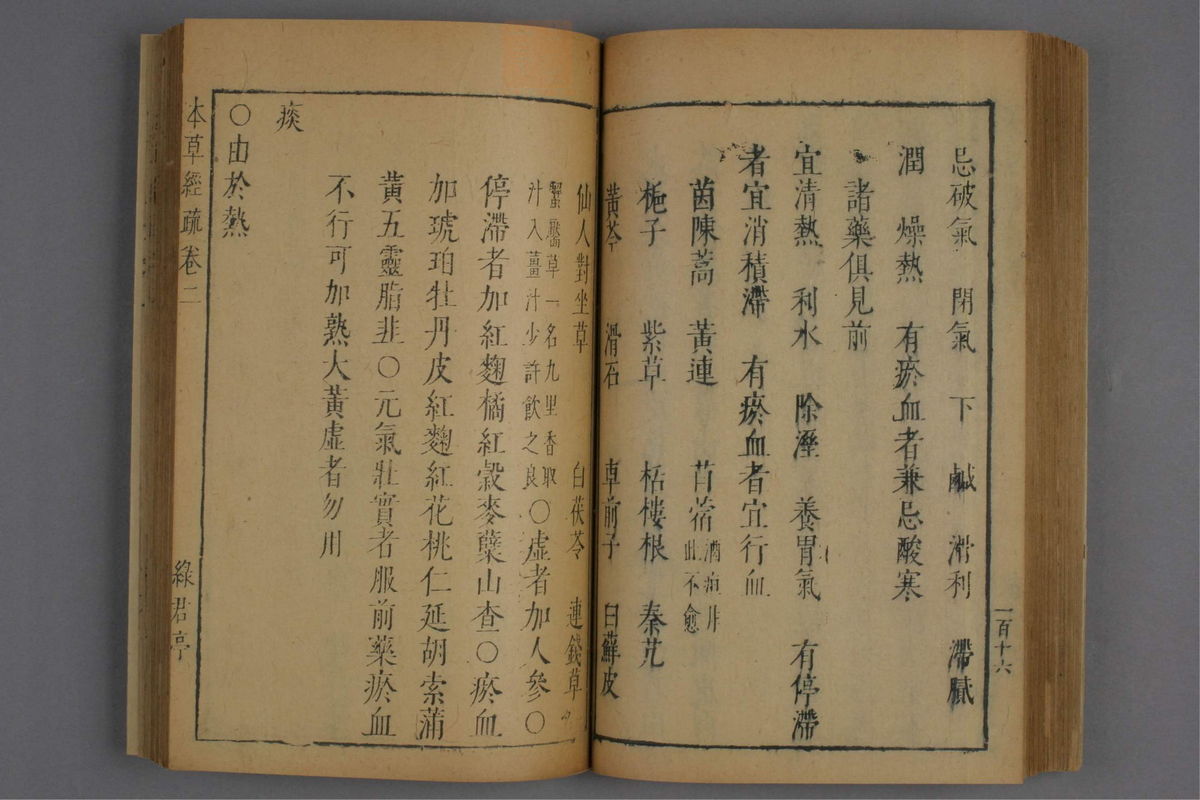 忌破氣 閉氣 下 鹹 滑利 滯膩
潤 燥熱 有瘀血者兼忌酸寒
諸藥俱見前
宜清熱 利水 除溼 養胃氣 有停滯
者宜消積滯 有瘀血者宜行血
茵陳蒿 黃連 苜蓿 酒疸非此不愈
梔子 紫草 栝樓根 秦艽
黃芩 滑石 車前子 白蘚皮
一百十六
仙人對坐草 白茯苓 連錢草
蠶繭草一名九里香取
汁入薑汁少許飲之良
○虛者加人參○
停滯者加紅麴橘紅穀麥糵山查○瘀血
加琥珀牡丹皮紅麴紅花桃仁延胡索蒲
黃五靈脂韭○元氣壯實者服前藥瘀血
不行可加熟大黃虛者勿用
痰
○由於熱
本草經疏卷二
綠君亭